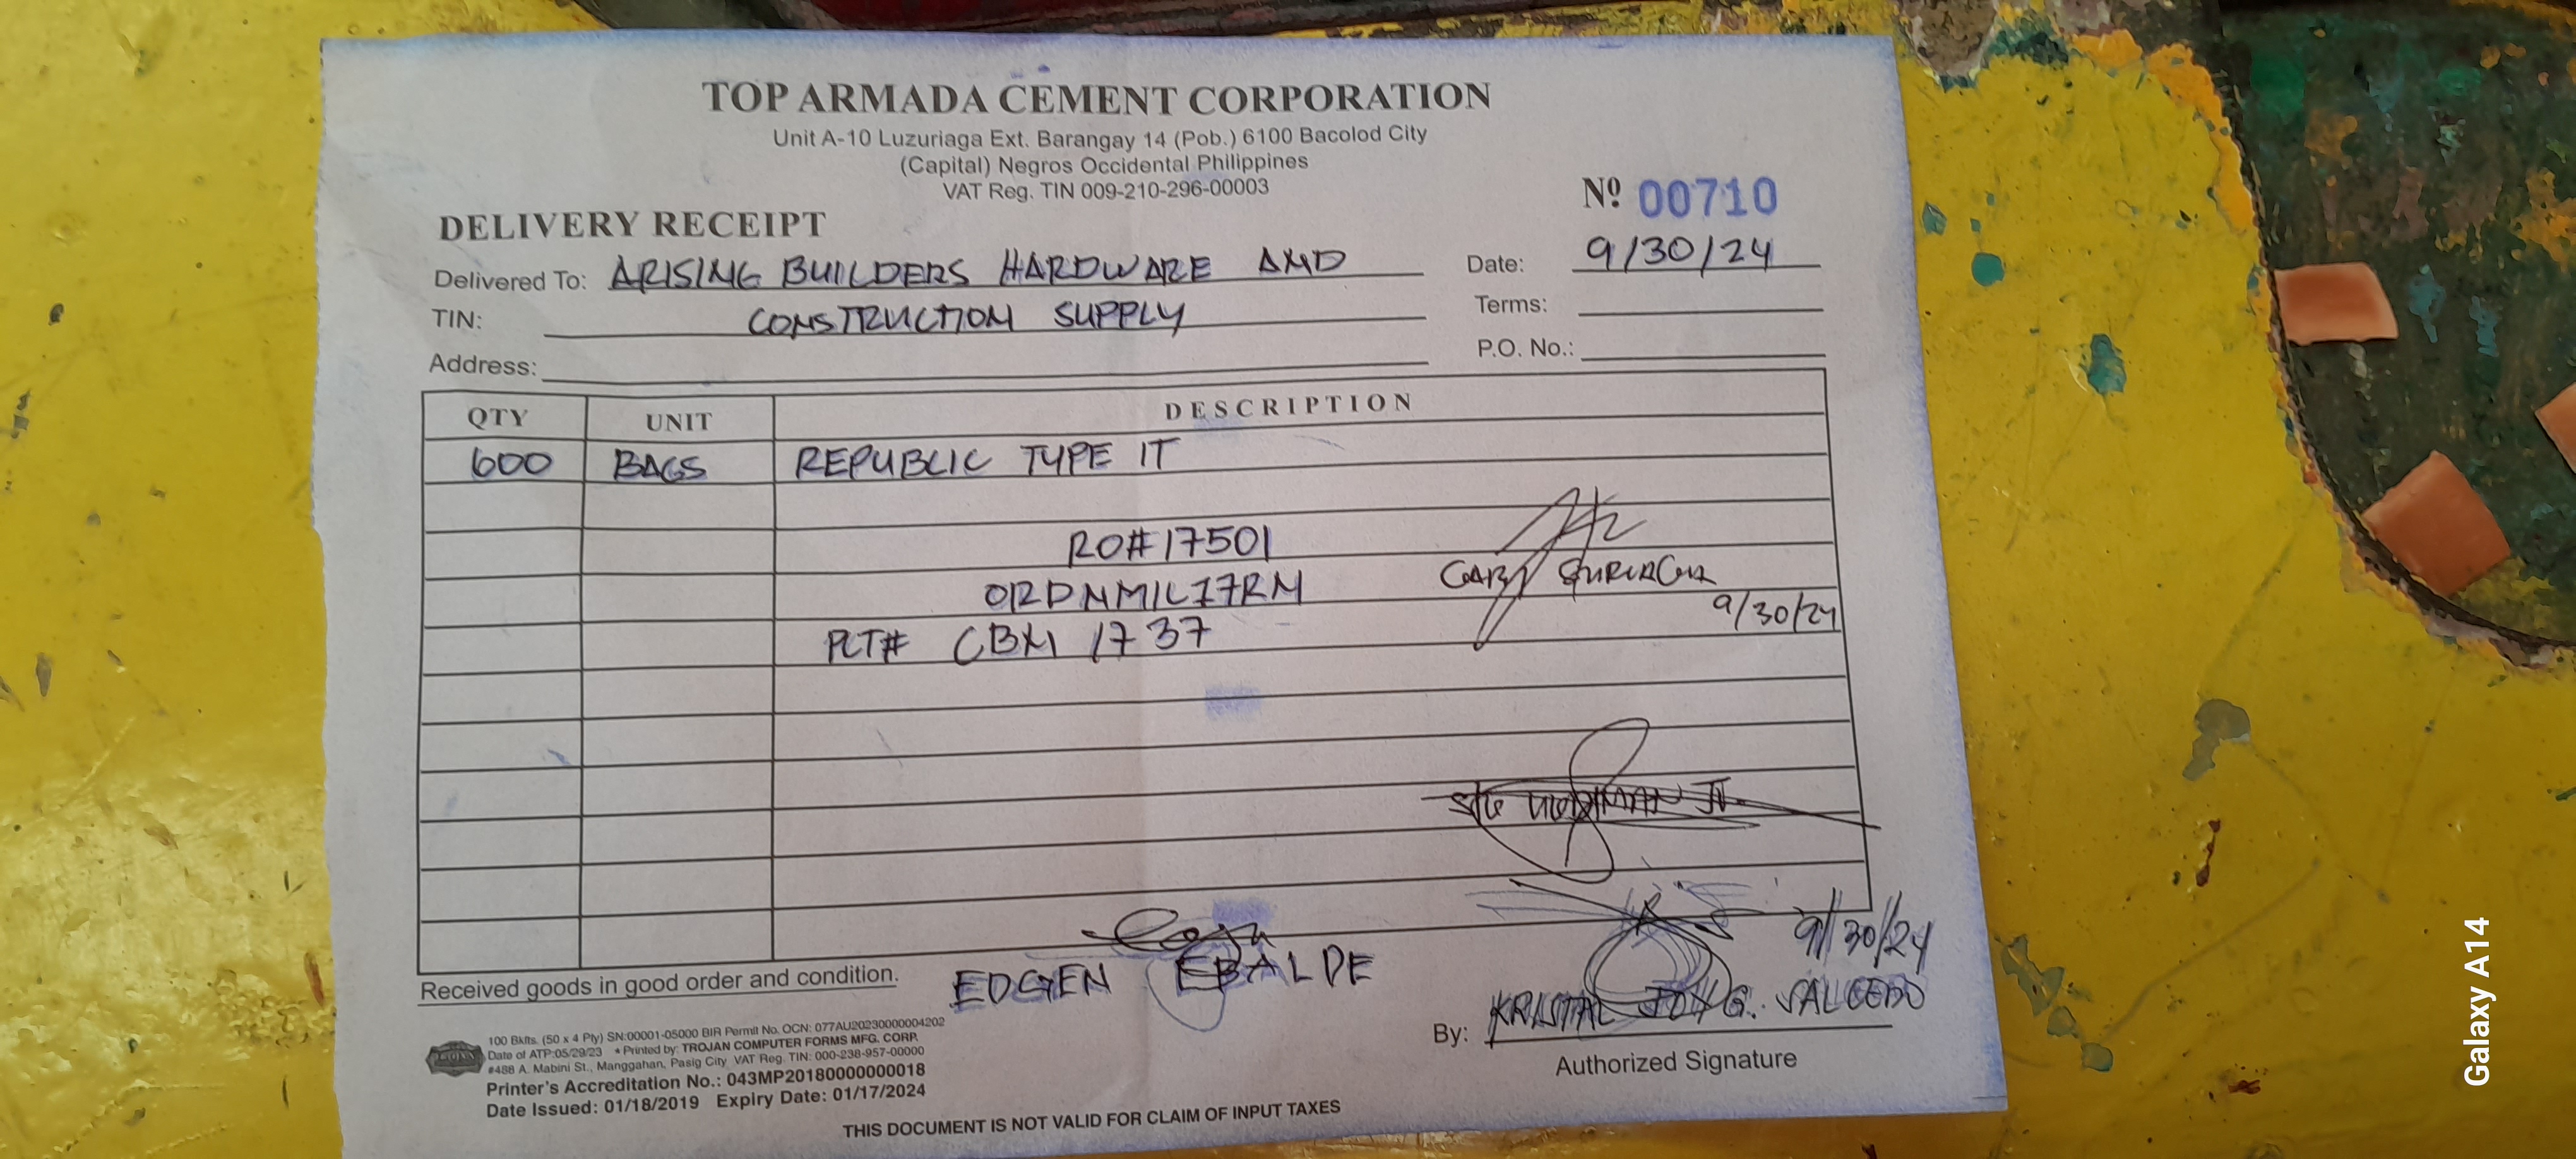 TOP ARMADA CEMENT CORPORATION
Unit A-10 Luzuriaga Ext. Barangay 14 (Pob.) 6100 Bacolod City
(Capital) Negros Occidental Philippines
VAT Reg. TIN 009-210-296-00003
Nº 00710
DELIVERY RECEIPT
Delivered To: ARISING BUILDERS HARDWARE AND
Date: 9/30/24
TIN: CONSTRUCTION SUPPLY
Terms:
Address:
P.O. No.:
QTY UNIT DESCRIPTION
600 BAGS REPUBLIC TYPE 1T
RO#17501
ORDNMIL17RM
9/30/24
PLT# CBM 1737
9/30/24
EDGEN EBALDE
Received goods in good order and condition.
By: KRISTAL JOY G. SALCEDO
Authorized Signature
100 Bklts. (50 x 4 Ply) SN:00001-05000 BIR Permit No. OCN: 077AU20230000004202
Date of ATP:05/29/23 * Printed by: TROJAN COMPUTER FORMS MFG. CORP.
#488 A. Mabini St., Manggahan, Pasig City VAT Reg. TIN: 000-238-957-00000
Printer's Accreditation No.: 043MP20180000000018
Date Issued: 01/18/2019 Expiry Date: 01/17/2024
THIS DOCUMENT IS NOT VALID FOR CLAIM OF INPUT TAXES
Galaxy A14